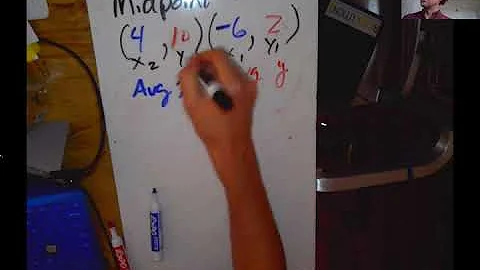 Midpoint
(4, 10)(-6, 2)
x₂, y x₁, y₁
Avg y
EXPO